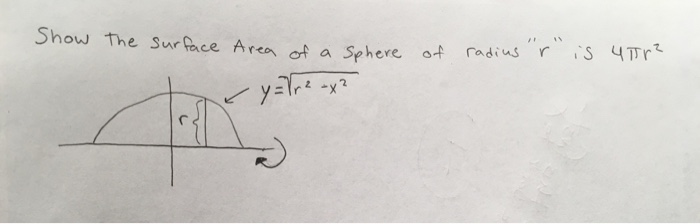 Show The Surface Area of a Sphere of radius "r" is 4πr²
y=√r² -x²
r{